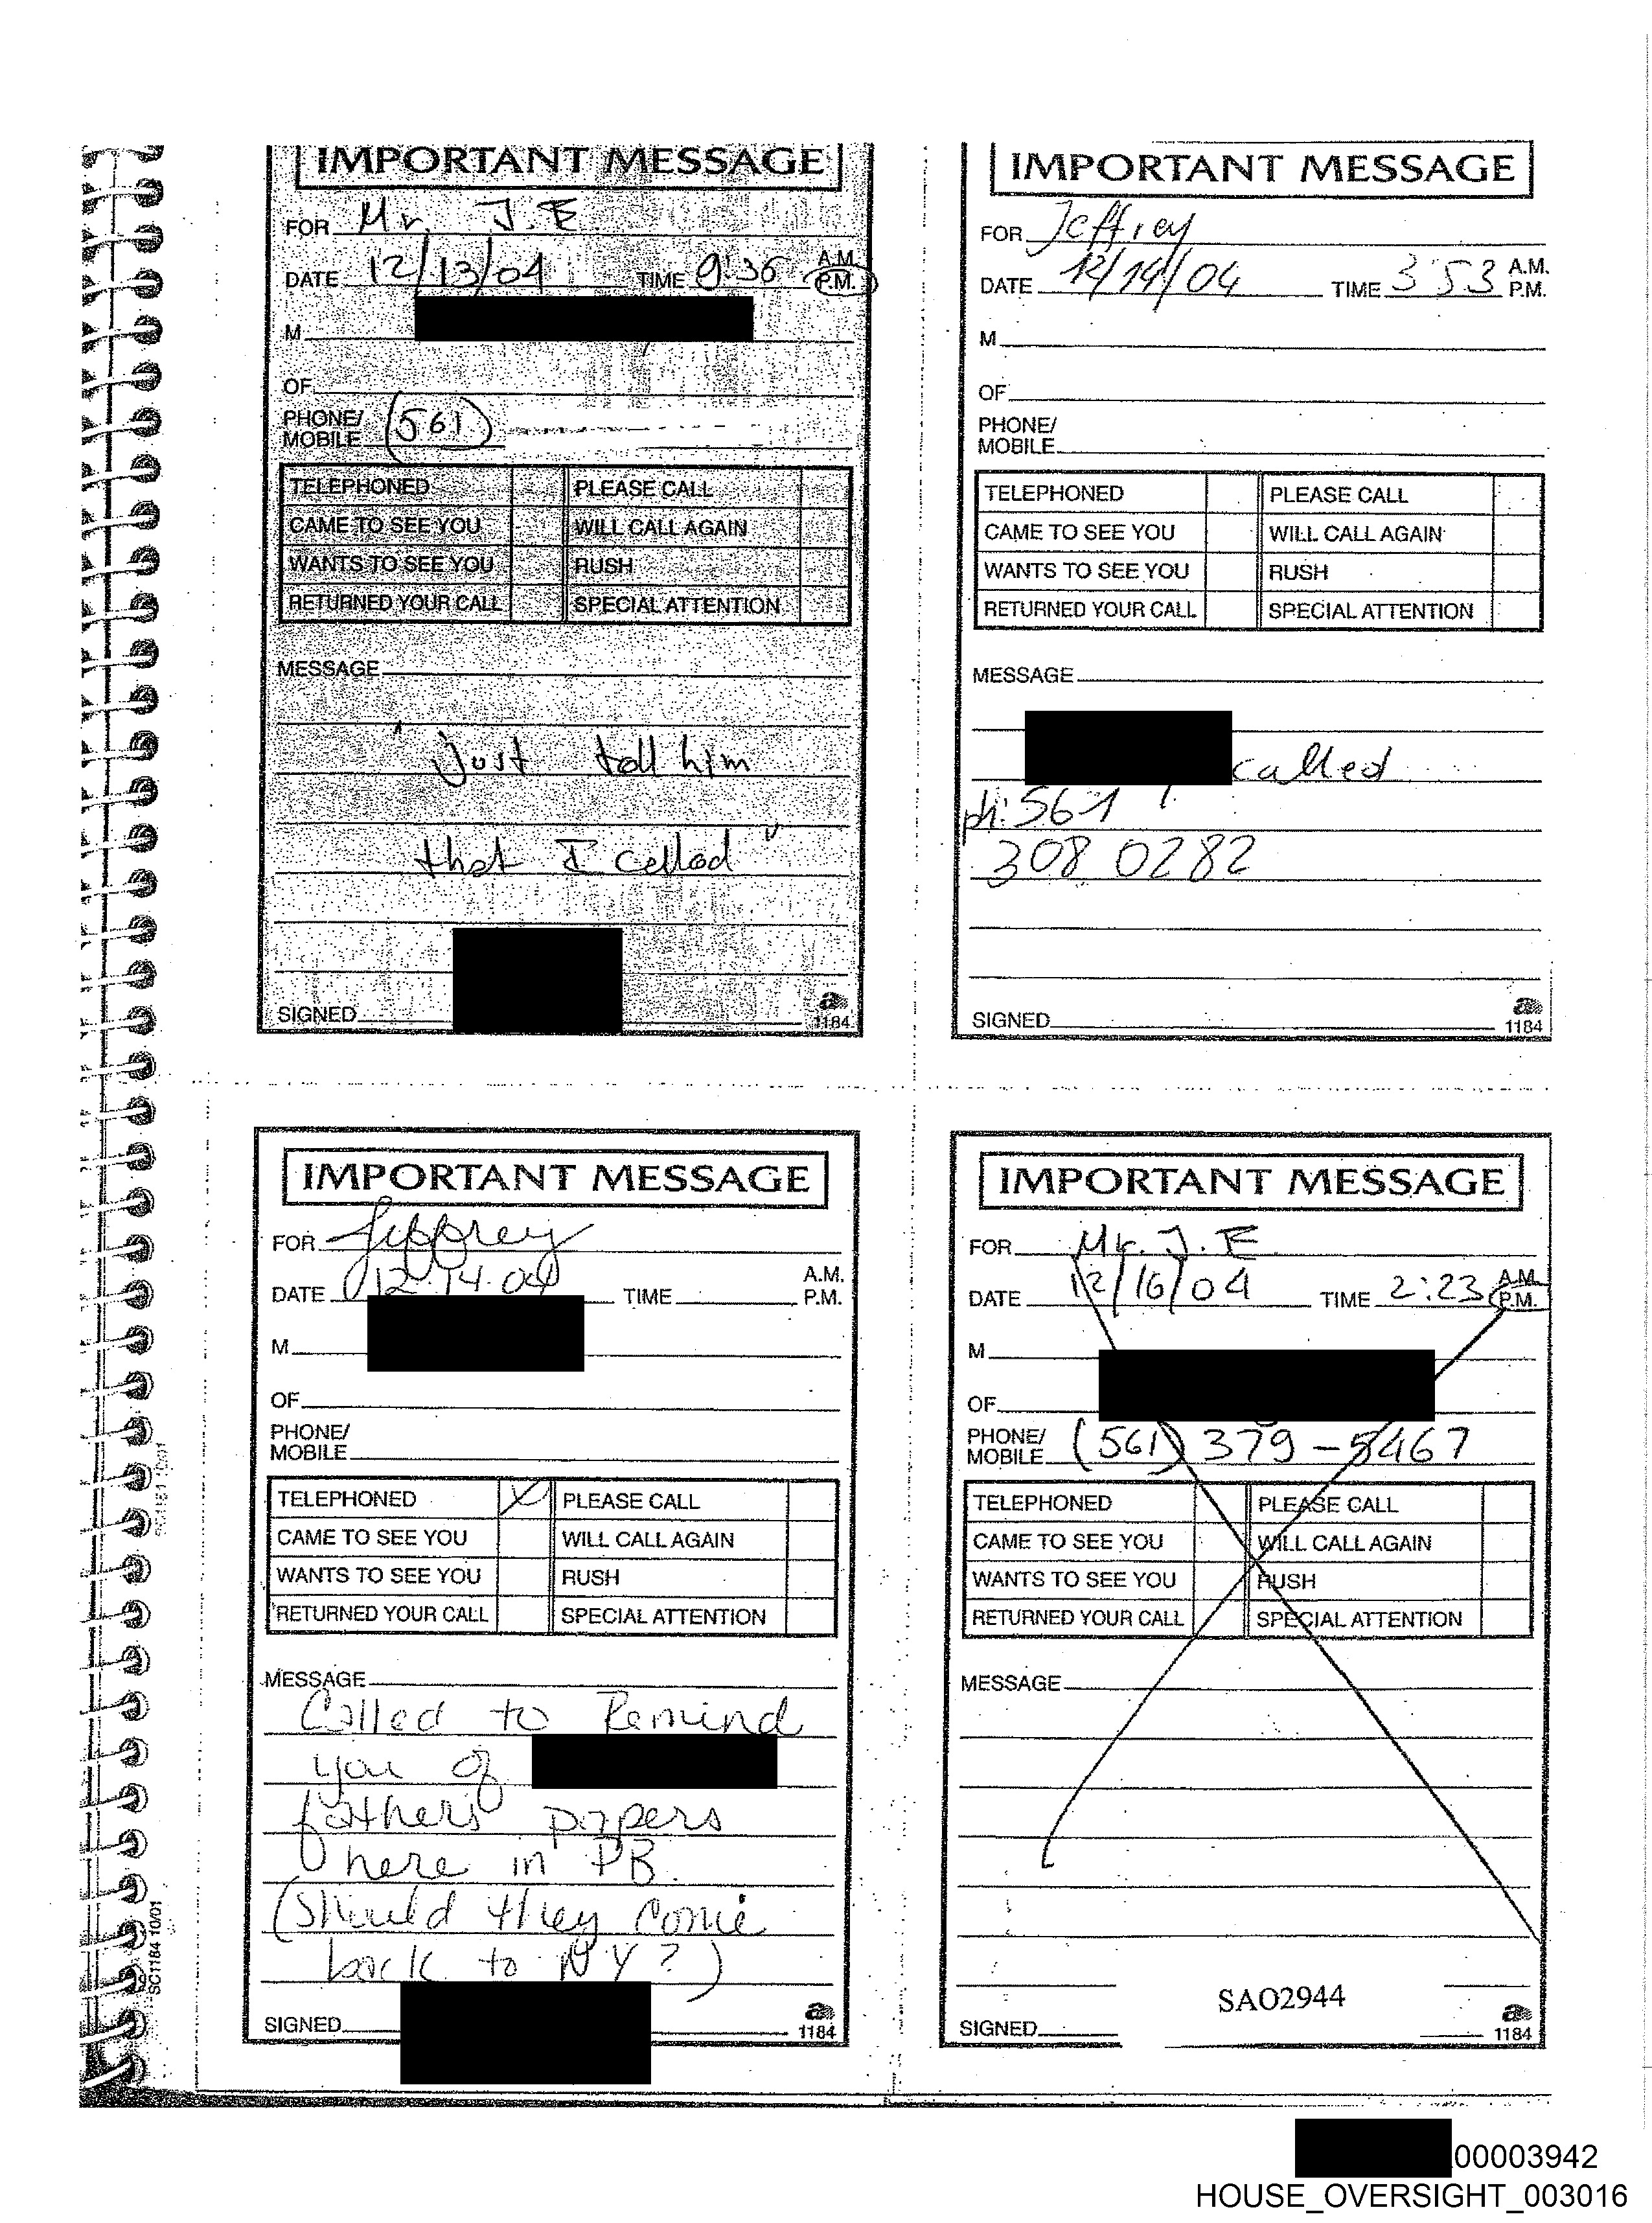 IMPORTANT MESSAGE
FOR Mr. J.E
DATE 12/13/04 TIME 9:36 A.M.
P.M.
M
OF
PHONE/
MOBILE (561)
TELEPHONED PLEASE CALL
CAME TO SEE YOU WILL CALL AGAIN
WANTS TO SEE YOU RUSH
RETURNED YOUR CALL SPECIAL ATTENTION
MESSAGE
"just tell him
that I called"
SIGNED
1184
IMPORTANT MESSAGE
FOR Jeffrey
DATE 12/14/04 TIME 3:53 A.M.
P.M.
M
OF
PHONE/
MOBILE
TELEPHONED PLEASE CALL
CAME TO SEE YOU WILL CALL AGAIN
WANTS TO SEE YOU RUSH
RETURNED YOUR CALL SPECIAL ATTENTION
MESSAGE
called
ph: 561
308 0282
SIGNED
1184
IMPORTANT MESSAGE
FOR Jeffrey
DATE 12.14.04 TIME A.M.
P.M.
M
OF
PHONE/
MOBILE
TELEPHONED X PLEASE CALL
CAME TO SEE YOU WILL CALL AGAIN
WANTS TO SEE YOU RUSH
RETURNED YOUR CALL SPECIAL ATTENTION
MESSAGE
Called to Remind
you of
father's papers
here in PB.
(Should they come
back to NY?)
SIGNED
1184
SC1184 10/01
IMPORTANT MESSAGE
FOR Mr. J.E
DATE 12/16/04 TIME 2:23 A.M.
P.M.
M
OF
PHONE/
MOBILE (561) 379-5467
TELEPHONED PLEASE CALL
CAME TO SEE YOU WILL CALL AGAIN
WANTS TO SEE YOU RUSH
RETURNED YOUR CALL SPECIAL ATTENTION
MESSAGE
SAO2944
SIGNED
1184
00003942
HOUSE_OVERSIGHT_003016